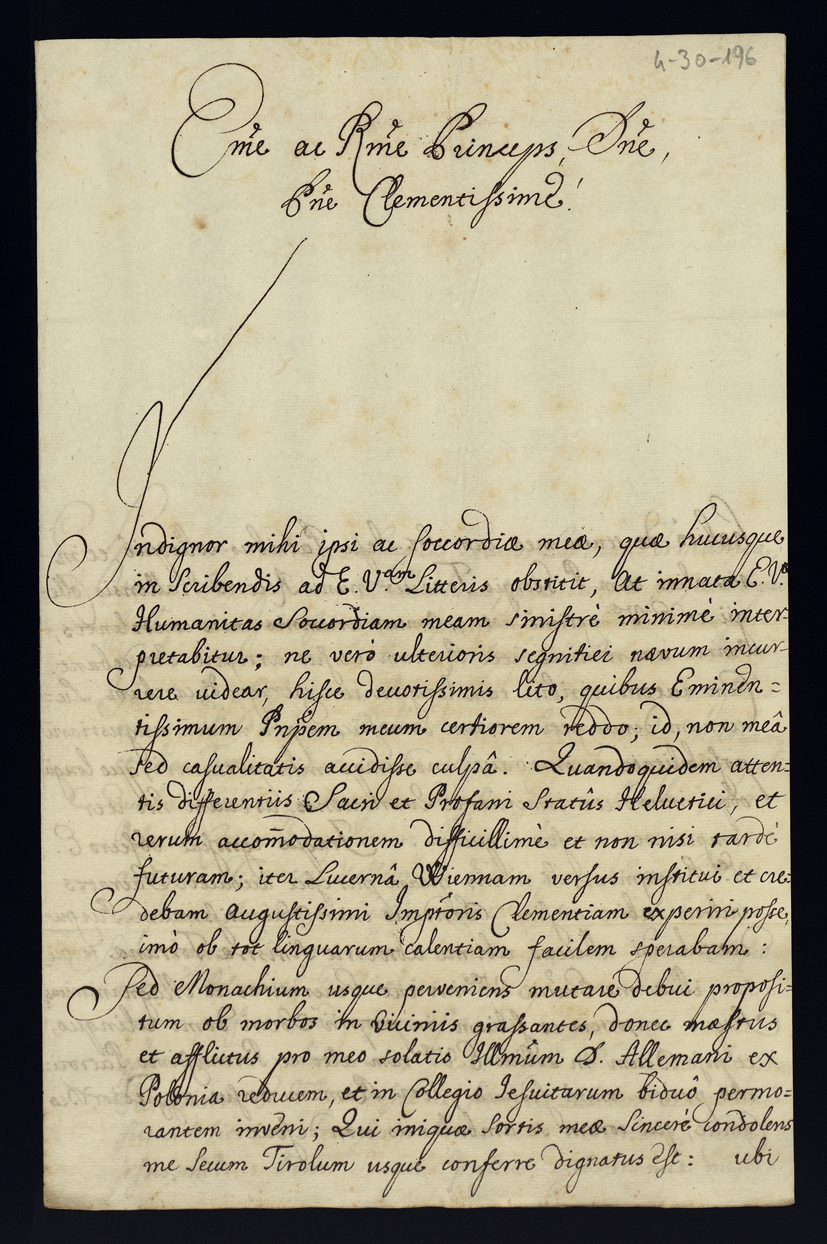 4-30-196
Eme ac Rme Princeps, Dne,
Dne Clementissime!
Indignor mihi ipsi ac soccordiæ meæ, quæ hucusque
in scribendis ad E. V.am Litteris obstitit, At innata E. V.æ
Humanitas Soccordiam meam sinistrè minimè inter-
pretabitur; ne verò ulterioris segnitiei nævum incur-
rere videar, hisce devotissimis lito, quibus Eminen=
tissimum Pnpem meum certiorem reddo; id, non meâ
sed casualitatis accidisse culpâ. Quandoquidem atten=
tis differentiis Sacri et Profani Statûs Helvetici, et
rerum accom̄odationem difficillimè et non nisi tardè
futuram; iter Lucernâ Wiennam versus institui et cre=
debam Augustissimi Imptoris Clementiam experiri posse,
imò ob tot linguarum calentiam facilem sperabam:
Sed Monachium usque perveniens mutare debui proposi=
tum ob morbos in viciniis grassantes, donec mæstus
et afflictus pro meo solatio Illmûm D. Allemani ex
Polonia reducem, et in Collegio Iesuitarum biduô permo=
rantem inveni; Qui iniquæ sortis meæ sincerè condolens
me secum Tirolum usque conferre dignatus est: ubi